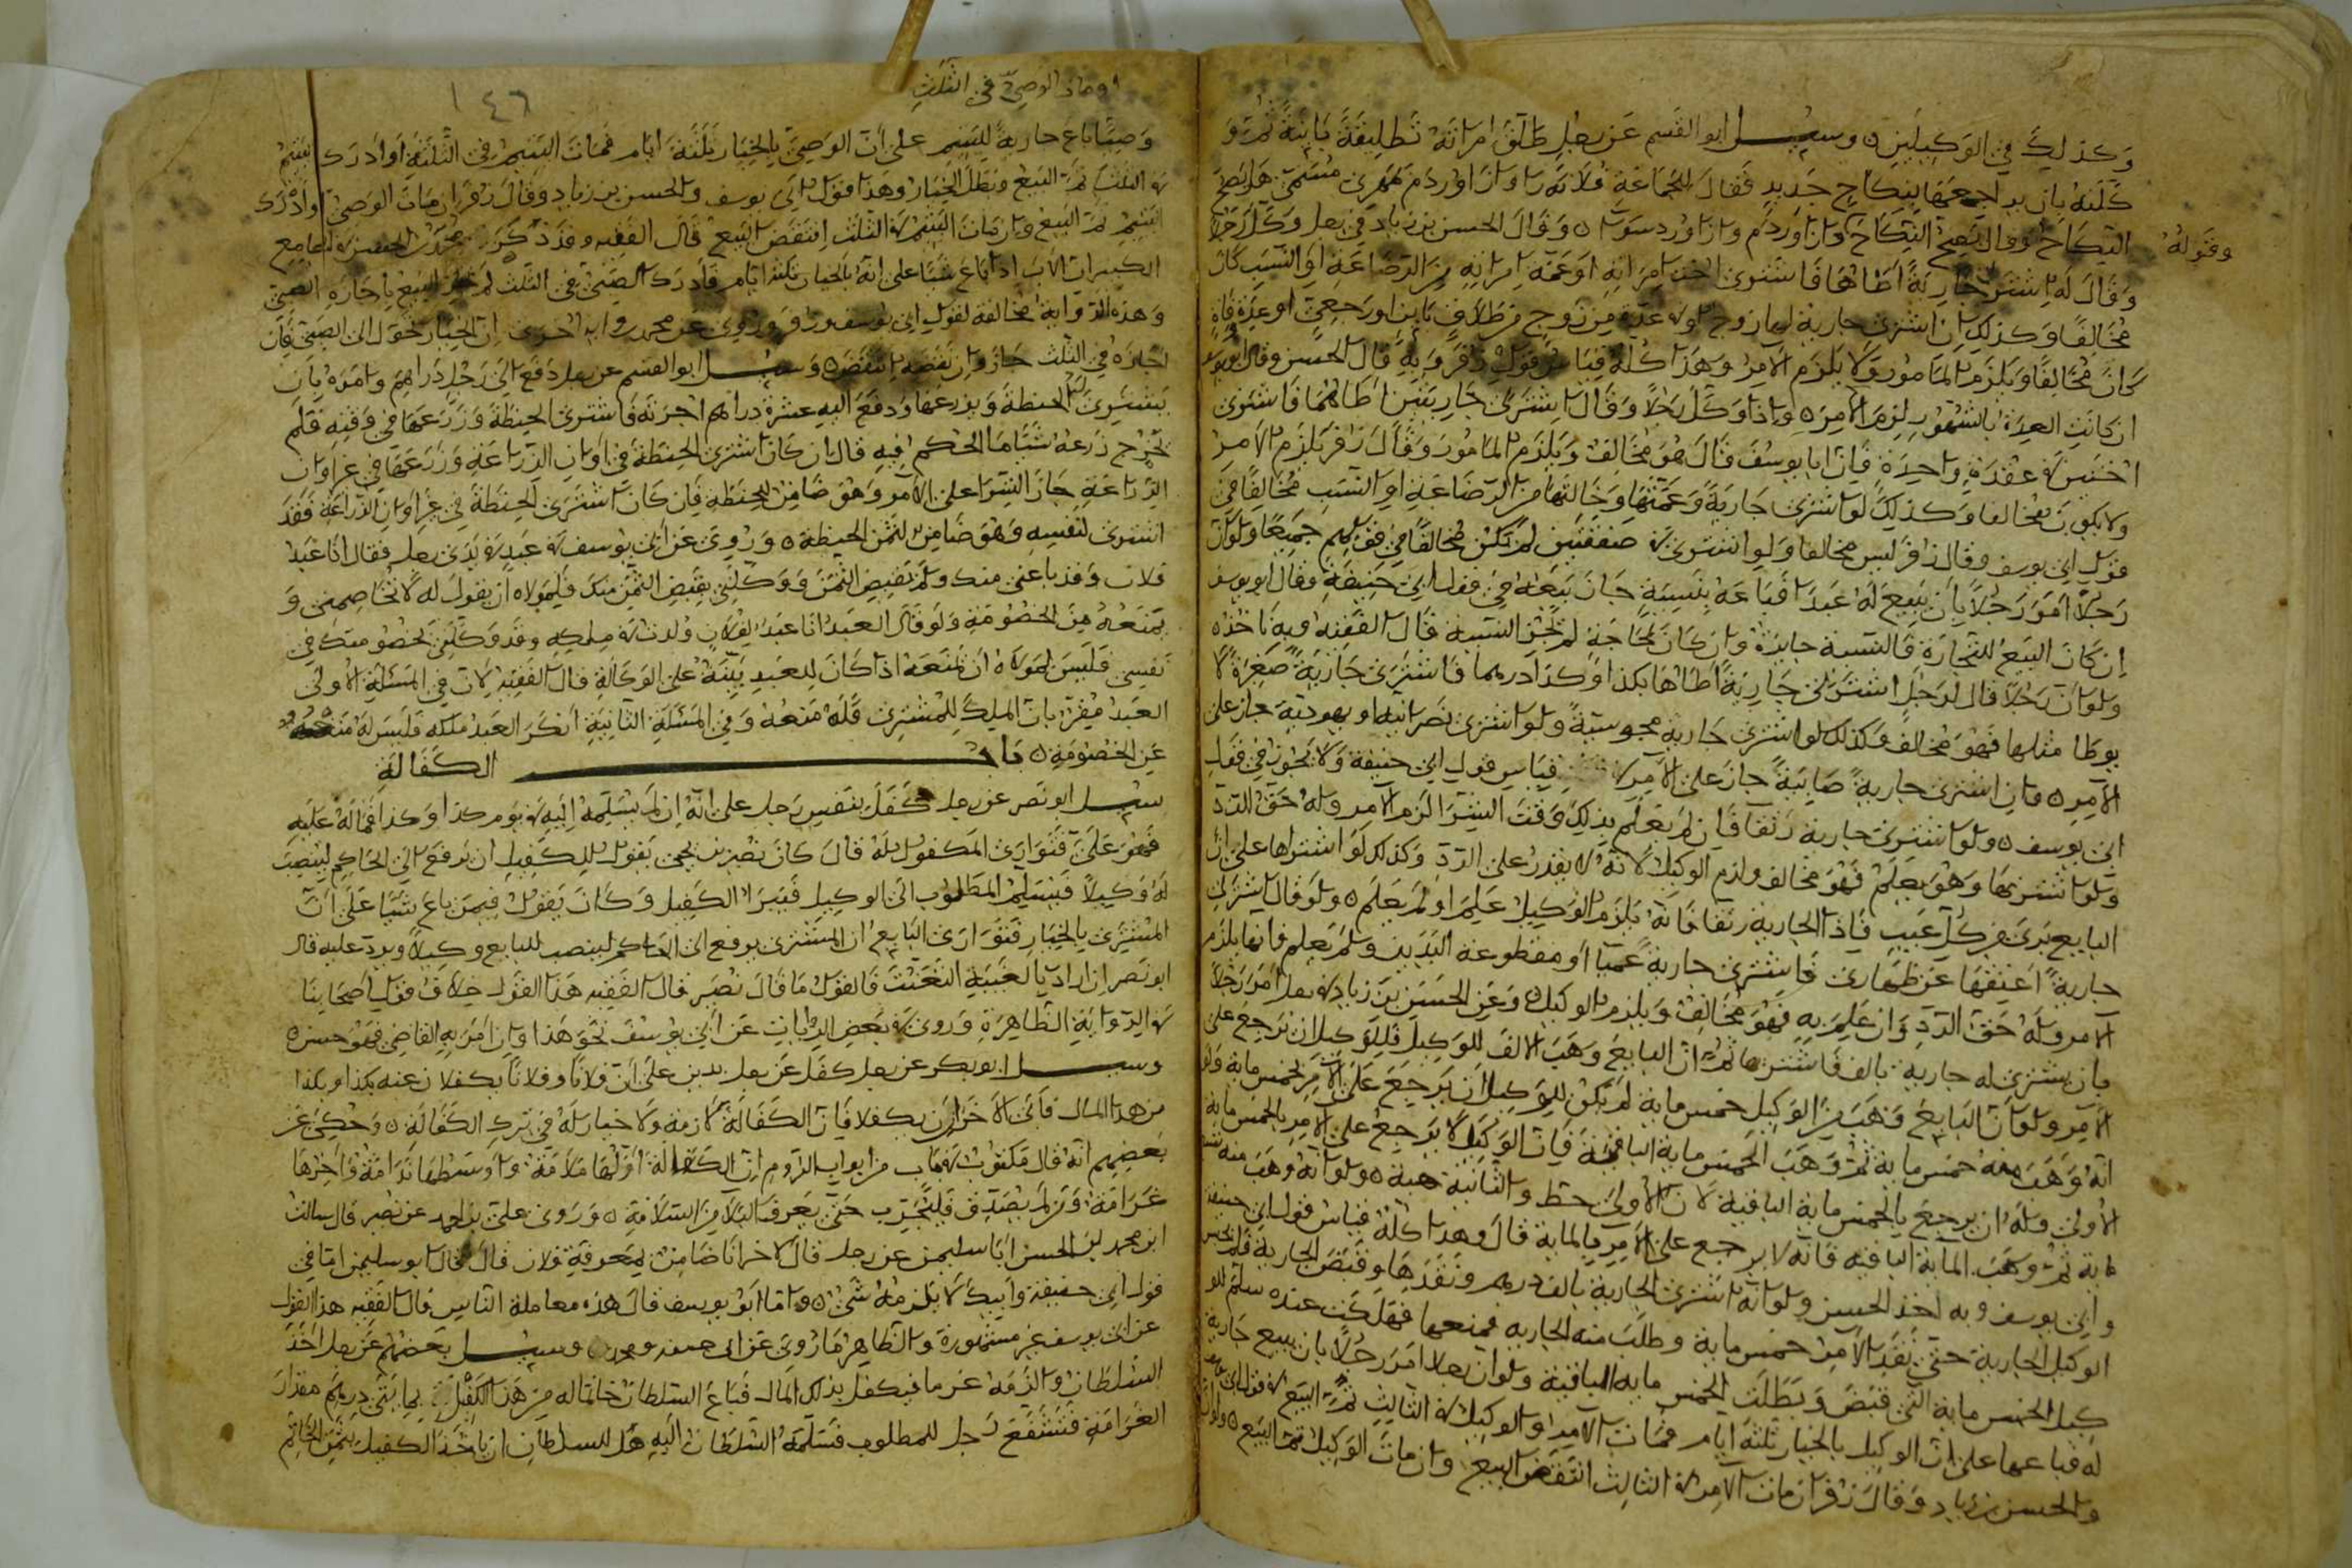 وكذلك في الوكيلين ٥ وسئل ابو القسم عن رجل طلق امراته تطليقة باينة ثم
كلته بان يراجعها بنكاح جديد فقال للجماعة فلانه را
وقوله
النكاح وقال يصح النكاح وقال الحسن بن زياد في رجل وكل رجلا
وقال له اشتر جارية اطاها فاشترى اخت امراته او عمة امراته من الرضاعة او النسب كان
مخالفا وكذلك ان اشترى جارية لها زوج او في عدة من زوج من طلاق باين او رجعي او عدة وفاة
كان مخالفا ويلزم المامور ولا يلزم الامر وهذا كله قياس قول زفر وبه قال الحسن وقال ابو يوسف
ان كانت العدة بالشهور لزم الامر ٥ واذا وكل رجلا وقال اشتر لي جاريتين اطاهما فاشترى
اختين في عقدة واحدة فان ابا يوسف قال هو مخالف ويلزم المامور وقال زفر يلزم الامر
ولا يكون مخالفا وكذلك لو اشترى جارية وعمتها او خالتها من الرضاعة او النسب مخالفا في
قول ابي يوسف وقال زفر ليس مخالفا ولو اشترى في صفقتين لم يكن مخالفا في قولهم جميعا ولو ان
رجلا امر رجلا بان يبيع له عبدا فباعه بنسيئة جاز بيعه في قول ابي حنيفة وقال ابو يوسف
ان كان البيع للتجارة فالنسية جايزة وان كان لحاجة لم تجز النسية قال الفقيه وبه ناخذه
ولو ان رجلا قال لرجل اشتر لي جارية اطاها بكذا وكذا درهما فاشترى جارية صغيرة لا
يوطا مثلها فهو مخالف وكذلك لو اشترى جارية مجوسية ولو اشترى نصرانية او يهودية جاز على
الامر ٥ وان اشترى جارية صابية جاز على الامر في قياس قول ابي حنيفة ولا يجوز في قول
ابي يوسف ٥ ولو اشترى جارية رتقا فان لم يعلم بذلك وقت الشرا لزم الامر وله حق الرد
ولو اشتراها وهو يعلم فهو مخالف ولزم الوكيل لانه لا يقدر على الرد وكذلك لو اشتراها على ان
البايع برئ من كل عيب فاذا الجارية رتقا فانه يلزم الوكيل علم او لم يعلم ٥ ولو قال اشتر لي
جارية اعتقها عن ظهاري فاشترى جارية عميا او مقطوعة اليدين ولم يعلم فانها يلزم
الامر وله حق الرد وان علم به فهو مخالف ويلزم الوكيل وعن الحسن بن زياد في رجل امر رجلا
بان يشتري له جارية بالف فاشترىها ثم ان البايع وهب الالف للوكيل فللوكيل ان يرجع على
الامر ولو ان البايع وهب من الوكيل خمس ماية لم يكن للوكيل ان يرجع على الامر بخمس ماية ولو
انه وهب منه خمس ماية ثم وهب الخمس ماية الباقية فان الوكيل لا يرجع على الامر بالخمس ماية
الاولى وله ان يرجع بالخمس ماية الباقية لان الاولى حط والثانية هبة ٥ ولو انه وهب منه تسع
ماية ثم وهب الماية الباقية فانه لا يرجع على الامر الا بالماية قال وهذا كله قياس قول ابي حنيفة
وابي يوسف وبه اخذ الحسن ولو انه اشترى الجارية بالف درهم ونقدها وقبض الجارية فلم
الوكيل الجارية حتى نقد الامر خمس ماية وطلب منه الجارية فمنعها فهلكت عنده سلم للو
كيل الخمس ماية التي قبض وبطلت الخمس ماية الباقية ولو ان رجلا امر رجلا بان يبيع جارية
له فباعها على ان الوكيل بالخيار ثلثة ايام فمات الامر او الوكيل في الثالث تم البيع في قول ابي يوسف
والحسن بن زياد وقال زفر ان مات الامر في الثالث انتقض البيع وان مات الوكيل تم البيع ٥ ولو ان
او مات الوصي في الثلث
١٤٦
وصيا باع جارية لليتيم على ان الوصي بالخيار ثلثة ايام فمات اليتيم في الثلثة او ادرك اليتيم
في الثلث تم البيع وبطل الخيار وهذا قول ابي يوسف والحسن بن زياد وقال زفر ان مات الوصي او ادرك
اليتيم تم البيع وان مات اليتيم في الثلث انتقض البيع قال الفقيه وقد ذكر محمد بن الحسن في الجامع
الكبير ان الاب اذا باع شيا على انه بالخيار ثلثة ايام فادرك الصبي في الثلث لم يجز البيع الا باجازة الصبي
وهذه الرواية مخالفة لقول ابي يوسف وزفر وروي عن محمد رواية اخرى ان الخيار تحول الى الصبي فان
اجازه في الثلث جاز وان نقضه انتقض ٥ وسئل ابو القسم عن رجل دفع الى رجل دراهم وامره بان
يشتري له الحنطة ويزرعها ودفع اليه عشرة دراهم اجرته فاشترى الحنطة وزرعها في وقته فلم
يخرج زرعه شيا ما الحكم فيه قال ان كان اشترى الحنطة في اوان الزراعة وزرعها في غير اوان
الزراعة جاز الشرا على الامر وهو ضامن للحنطة فان كان اشترى الحنطة في غير اوان الزراعة فقد
اشترى لنفسه وهو ضامن لثمن الحنطة ٥ وروي عن ابي يوسف في عبد في يدي رجل فقال انا عبد
فلان وقد باعني منك ولم يقبض الثمن ووكلني بقبض الثمن منك فلمولاه ان يقول له لا تخاصمني و
يمنعه من الخصومة ولو قال العبد انا عبد لفلان ولدت في ملكه وقد وكلني بخصومتك في
نفسي فليس لمولاه ان يمنعه اذا كان للعبد بينة على الوكالة قال الفقيه لان في المسئلة الاولى
العبد مقر بان الملك للمشتري فله منعه وفي المسئلة الثانية انكر العبد ملكه فليس له منعه
عن الخصومة ٥ باب الكفالة
سئل ابو نصر عن رجل كفل بنفس رجل على انه ان لم يسلمه اليه في يوم كذا وكذا فماله عليه
فهو علي فتوارى المكفول له قال كان نصير بن يحيى يقول للكفيل ان يرفع الى الحاكم لينصب
له وكيلا فيسلم المطلوب الى الوكيل فيبرا الكفيل وكان يقول فيمن باع شيا على ان
المشتري بالخيار فتوارى البايع ان المشتري يرفع الى الحاكم لينصب للبايع وكيلا ويرد عليه قال
ابو نصر ان اراد بالغيبة التعنت فالقول ما قال نصير قال الفقيه هذا القول خلاف قول اصحابنا
في الرواية الظاهرة وروي في بعض الروايات عن ابي يوسف نحو هذا وان امر به القاضي فهو حسن ٥
وسئل ابو بكر عن رجل كفل عن رجل بدين على ان فلانا وفلانا يكفلان عنه بكذا وبكذا
من هذا المال فابى الاخران ان يكفلا فان الكفالة لازمة ولا خيار له في ترك الكفالة ٥ وحكي عن
بعضهم انه قال مكتوب في باب من ابواب الروم ان الكفالة اولها ملامة واوسطها ندامة واخرها
غرامة ومن لم يصدق فليجرب حتى يعرف البلا من السلامة ٥ وروى علي بن احمد عن نصير قال سالت
ابن محمد بن الحسن ابا سليمن عن رجل قال لاخر انا ضامن لمعرفة فلان قال فقال ابو سليمن اما في
قول ابي حنيفة وابيك لا يلزمه شي ٥ واما ابو يوسف قال هذه معاملة الناس قال الفقيه هذا القول
عن ابي يوسف غير مشهورة والظاهر ما روي عن ابي حنيفة ومحمد ٥ وسئل بعضهم عن رجل اخذ
السلطان والزمه غرما فيكفل بذلك المال فباع السلطان خاتما له من هذا الكفيل بمايتي درهم مقدار
الغرامة فتشفع رجل للمطلوب فسلمه السلطان اليه هل للسلطان ان ياخذ الكفيل بثمن الخاتم